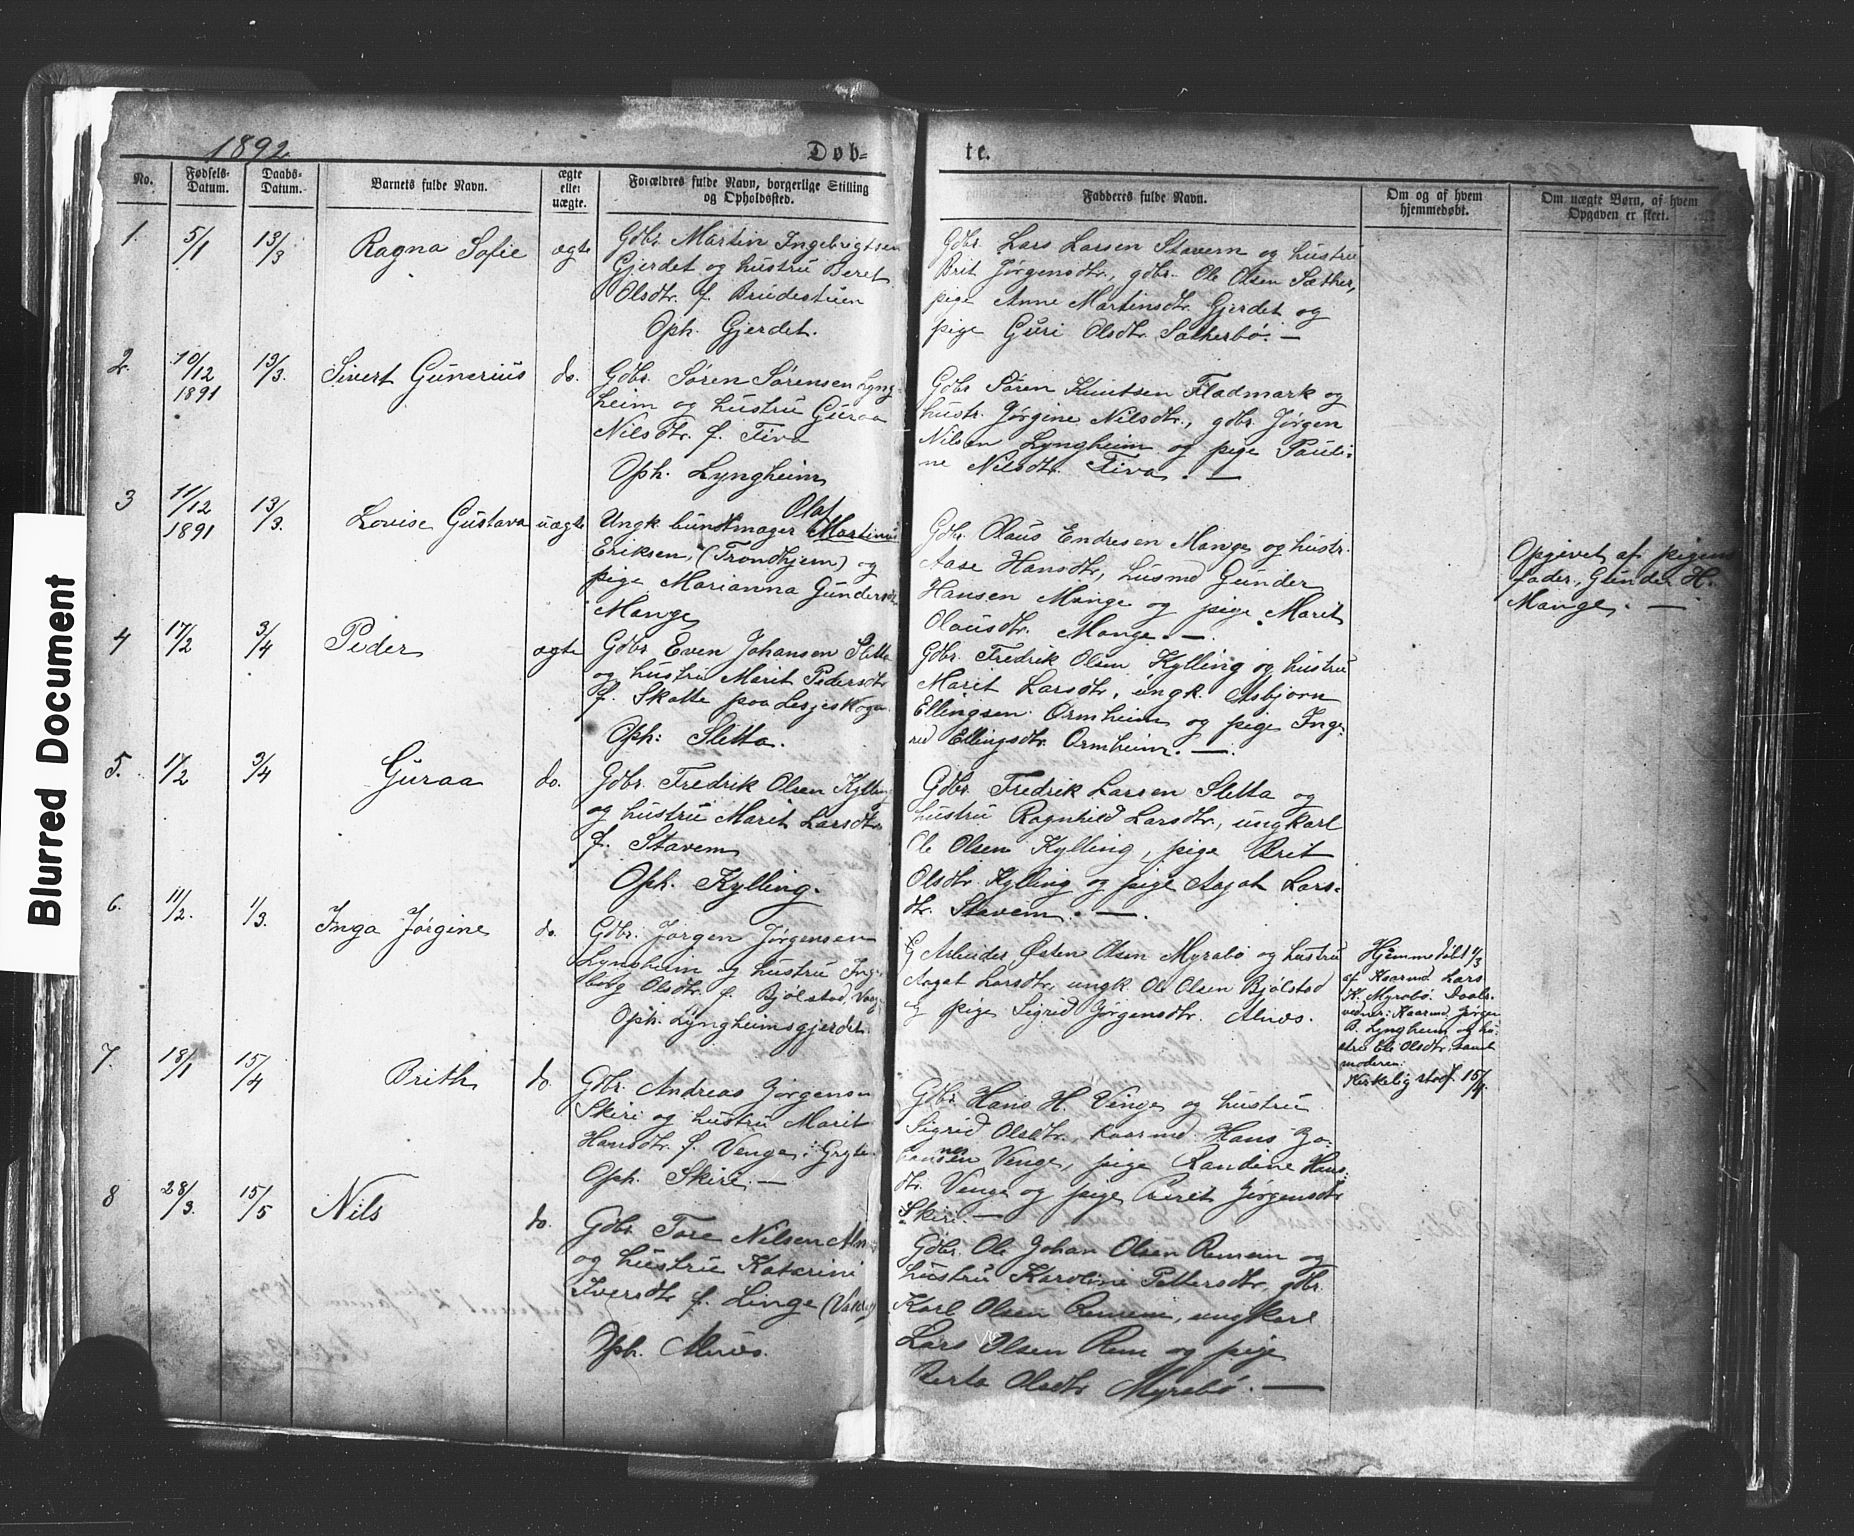 1892
Døb=
te.
No.
Fødsels-
Datum.
Daabs-
Datum.
Barnets fulde Navn.
ægte
eller
uægte.
Forældres fulde Navn, borgerlige Stilling
og Opholdssted.
Fadderes fulde Navn.
Om og af hvem
hjemmedøbt.
Om uægte Børn, af hvem
Opgaven er skeet.
1.
5/1
13/3
Ragna Sofie
ægte
Gdbr. Martin Ingebrigtsen
Gjerdet og hustru Beret
Olsdtr. f. Brudestuen
Oph. Gjerdet.
Gdbr. Lars Larsen Stavem og hustru
Brit Jørgensdtr., gdbr. Ole Olsen Sæther,
pige Anne Martinsdtr. Gjerdet og
pige Guri Olsdtr. Sætherbø. —
2.
10/12
1891
13/3.
Sivert Gunerius
do.
Gdbr. Søren Sørensen Lyng-
heim og hustru Guraa
Nilsdtr. f. Fiva
Oph. Lyngheim
Gdbr. Søren Knutsen Fladmark og
hustr. Jørgine Nilsdtr., gdbr. Jørgen
Nilsen Lyngheim og pige Pauli-
ne Nilsdtr. Fiva. —
3
11/12
1891
13/3.
Lovise Gustava
uægte
Olaf
Ungk. buntmager Martinus
Eriksen, (Trondhjem) og
pige Marianna Gundersdtr
Mange
Gdbr. Olaus Endresen Mange og hustr.
Aase Hansdtr, husmd Gunder
Hansen Mange og pige Marit
Olausdtr. Mange. —
Opgivet af pigens
fader, Gunder H.
Mange. —
4
17/2
3/4
Peder
ægte
Gdbr Even Johansen Sletta
og hustru Marit Pedersdtr
f. Skotte paa Lesjeskogen
Oph: Sletta.
Gdbr. Fredrik Olsen Kylling og hustru
Marit Larsdtr, ungk. Asbjørn
Ellingsen Ormheim og pige Inge-
red Ellingsdtr. Ormheim. —
5.
17/2
3/4
Guraa
do.
Gdbr. Fredrik Olsen Kylling
og hustru Marit Larsdtr.
f. Stavem
Oph. Kylling.
Gdbr. Fredrik Larsen Sletta og
hustru Ragnhild Larsdtr., ungkarl
Ole Olsen Kylling, pige Brit
Olsdtr. Kylling og pige Aagot Lars-
dtr. Stavem. —
6.
11/2.
1/3.
Inga Jørgine
do.
Gdbr. Jørgen Jørgensen
Lyngheim og hustru Inge-
borg Olsdtr. f. Bjølstad, Vaage
Oph. Lyngheimsgjerdet.
Arbeider Østen Olsen Myrabø og hustru
Aagot Larsdtr, ungk Ole Olsen Bjølstad
og pige Sigrid Jørgensdtr. Alnes.
Hjemmedøbt 1/3
af Kaarmd Lars
K. Myrabø. Daabs-
vidner: Kaarmd. Jørgen
B. Lyngheim og hu-
stru Ele Olsdtr. samt
moderen.
Kirkelig stadf. 15/4.
7.
18/1
15/4
Brith
do.
Gdbr. Andreas Jørgensen
Skiri og hustru Marit
Hansdtr. f. Venge i Gryten
Oph. Skiri. —
Gdbr. Hans H. Venge og hustru
Sigrid Olsdtr., kaarmd. Hans Jo-
hannesen Venge, pige Randine Hans-
dtr. Venge og pige Berit Jørgensdtr
Skiri. —
8
28/3.
15/5
Nils
do.
Gdbr Tore Nilsen Alnes
og hustru Katerine
Iversdtr f. Linge
Oph. Alnes.
Gdbr. Ole Johan Olsen Remem og
hustru Karoline Pettersdtr, gdbr.
Karl Olsen Remem, ungkarl
Lars Olsen Rem og pige
Berta Olsdtr Myrabø. —
Blurred Document